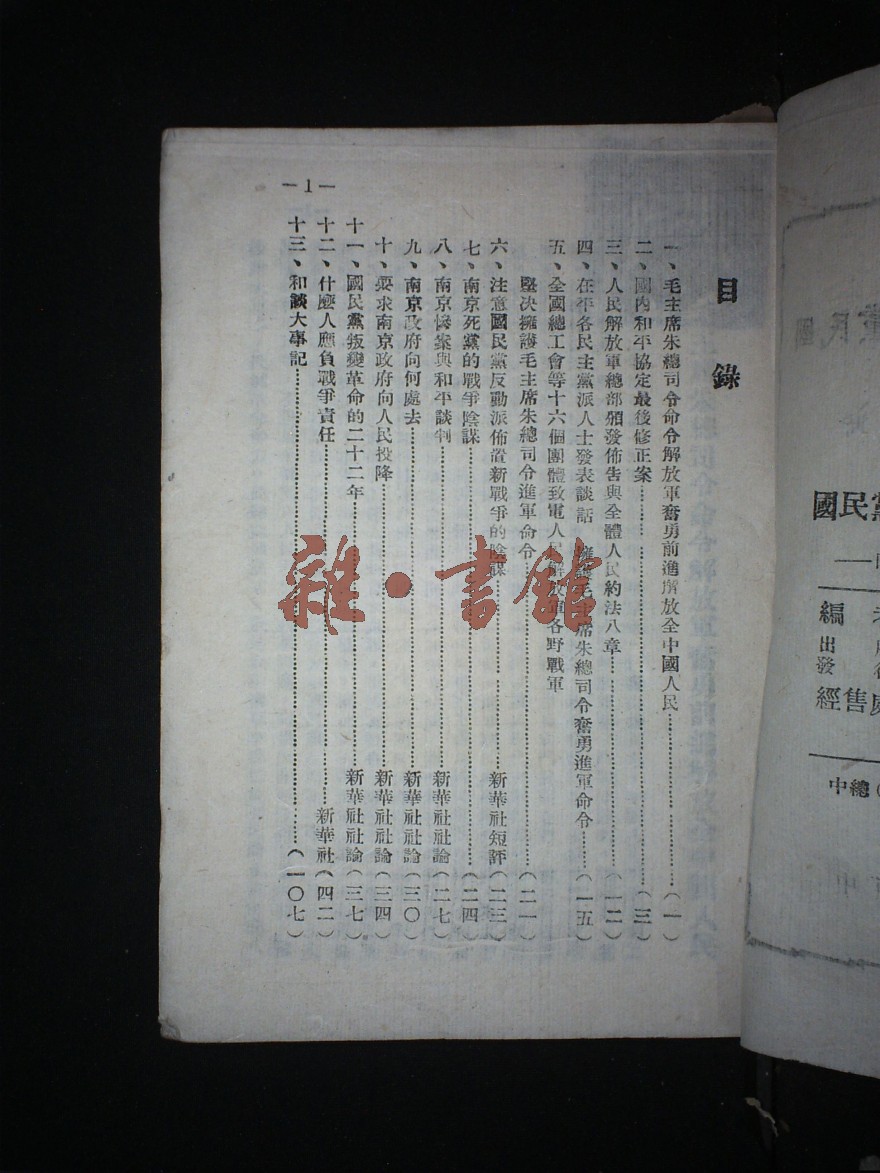 目錄
一、毛主席朱總司令命令解放軍奮勇前進解放全中國人民……（一）
二、國內和平協定最後修正案……（三）
三、人民解放軍總部頒發佈告與全體人民約法八章……（一二）
四、在平各民主黨派人士發表談話 擁護毛主席朱總司令奮勇進軍命令……（一五）
五、全國總工會等十六個團體致電人民解放軍各野戰軍
堅決擁護毛主席朱總司令進軍命令……（二一）
六、注意國民黨反動派佈置新戰爭的陰謀……新華社短評（二三）
七、南京死黨的戰爭陰謀……（二四）
八、南京慘案與和平談判……新華社社論（二七）
九、南京政府向何處去……新華社社論（三〇）
十、要求南京政府向人民投降……新華社社論（三四）
十一、國民黨叛變革命的二十二年……新華社社論（三七）
十二、什麼人應負戰爭責任……新華社（四二）
十三、和談大事記……（一〇七）
—1—
雜·書館
國民黨
編
出
發
經售處
中總